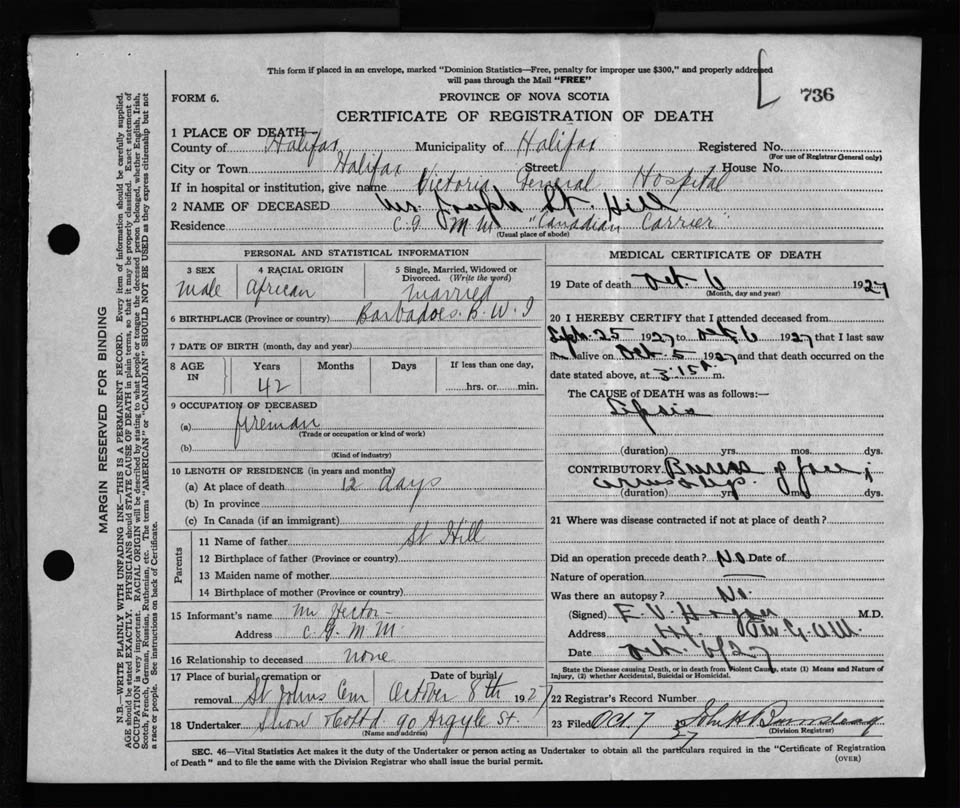 This form if placed in an envelope, marked "Dominion Statistics—Free, penalty for improper use $300," and properly addressed
will pass through the Mail "FREE"
736
FORM 6.
PROVINCE OF NOVA SCOTIA
CERTIFICATE OF REGISTRATION OF DEATH
1 PLACE OF DEATH—
County of Halifax Municipality of Halifax Registered No.
(For use of Registrar General only)
City or Town Halifax Street House No.
If in hospital or institution, give name Victoria General Hospital
2 NAME OF DECEASED Mr. Joseph St. Hill
Residence C.G.M.M. "Canadian Carrier"
(Usual place of abode)
PERSONAL AND STATISTICAL INFORMATION
3 SEX 4 RACIAL ORIGIN 5 Single, Married, Widowed or
Divorced. (Write the word)
male African married
6 BIRTHPLACE (Province or country) Barbadoes. B. W. I
7 DATE OF BIRTH (month, day and year)
8 AGE IN Years Months Days If less than one day,
42 hrs. or min.
9 OCCUPATION OF DECEASED
(a) fireman
(Trade or occupation or kind of work)
(b)
(Kind of industry)
10 LENGTH OF RESIDENCE (in years and months)
(a) At place of death 12 days
(b) In province
(c) In Canada (if an immigrant)
Parents
11 Name of father St Hill
12 Birthplace of father (Province or country)
13 Maiden name of mother
14 Birthplace of mother (Province or country)
15 Informant's name Mr Hector
Address C.G.M.M.
16 Relationship to deceased none
17 Place of burial, cremation or Date of burial
removal St Johns Cem October 8th 1927
18 Undertaker Snow & Co Ltd 90 Argyle St.
(Name and address)
MEDICAL CERTIFICATE OF DEATH
19 Date of death Oct. 6 1927
(Month, day and year)
20 I HEREBY CERTIFY that I attended deceased from
Sept. 25 1927 to Oct 6 1927 that I last saw
him alive on Oct. 5 1927 and that death occurred on the
date stated above, at 3:15 a. m.
The CAUSE of DEATH was as follows:—
Sepsis
(duration) yrs. mos. dys.
CONTRIBUTORY Burns of face;
arms & legs.
(duration) yrs. mos. dys.
21 Where was disease contracted if not at place of death?
Did an operation precede death? No Date of
Nature of operation —
Was there an autopsy? No.
(Signed) E. V. M.D.
Address
Date Oct. 6/27
State the Disease causing Death, or in death from Violent Causes, state (1) Means and Nature of
Injury, (2) whether Accidental, Suicidal or Homicidal.
22 Registrar's Record Number
23 Filed Oct 7 27 John H Barnstead
(Division Registrar)
SEC. 46—Vital Statistics Act makes it the duty of the Undertaker or person acting as Undertaker to obtain all the particulars required in the "Certificate of Registration
of Death" and to file the same with the Division Registrar who shall issue the burial permit.
(OVER)
MARGIN RESERVED FOR BINDING
N.B.—WRITE PLAINLY WITH UNFADING INK—THIS IS A PERMANENT RECORD. Every item of information should be carefully supplied.
AGE should be stated EXACTLY. PHYSICIANS should STATE CAUSE OF DEATH in plain terms, so that it may be properly classified. Exact statement of
OCCUPATION is very important. RACIAL ORIGIN will be described by stating to what people or tongue the deceased person belonged, whether English, Irish,
Scotch, French, German, Russian, Ruthenian, etc. The terms "AMERICAN" or "CANADIAN" SHOULD NOT BE USED as they express citizenship but not
a race or people. See instructions on back of Certificate.